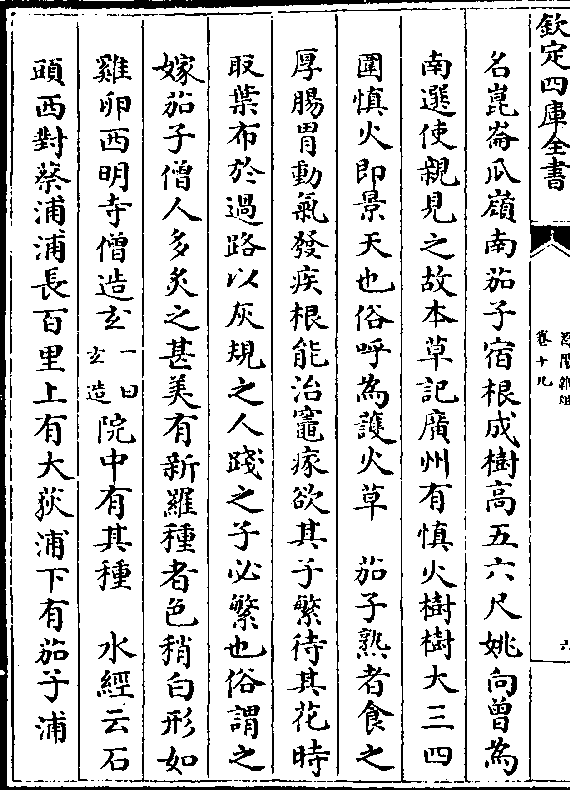 欽定四庫全書
酉陽雜俎
卷十九
名崑崙瓜嶺南茄子宿根成樹高五六尺姚向曾為
南選使親見之故本草記廣州有慎火樹樹大三四
圍慎火即景天也俗呼為護火草 茄子熟者食之
厚腸胃動氣發疾根能治竈瘃欲其子繁待其花時
取葉布於過路以灰規之人踐之子必繁也俗謂之
嫁茄子僧人多炙之甚美有新羅種者色稍白形如
雞卵西明寺僧造玄一曰玄造院中有其種 水經云石
頭西對蔡浦浦長百里上有大荻浦下有茄子浦